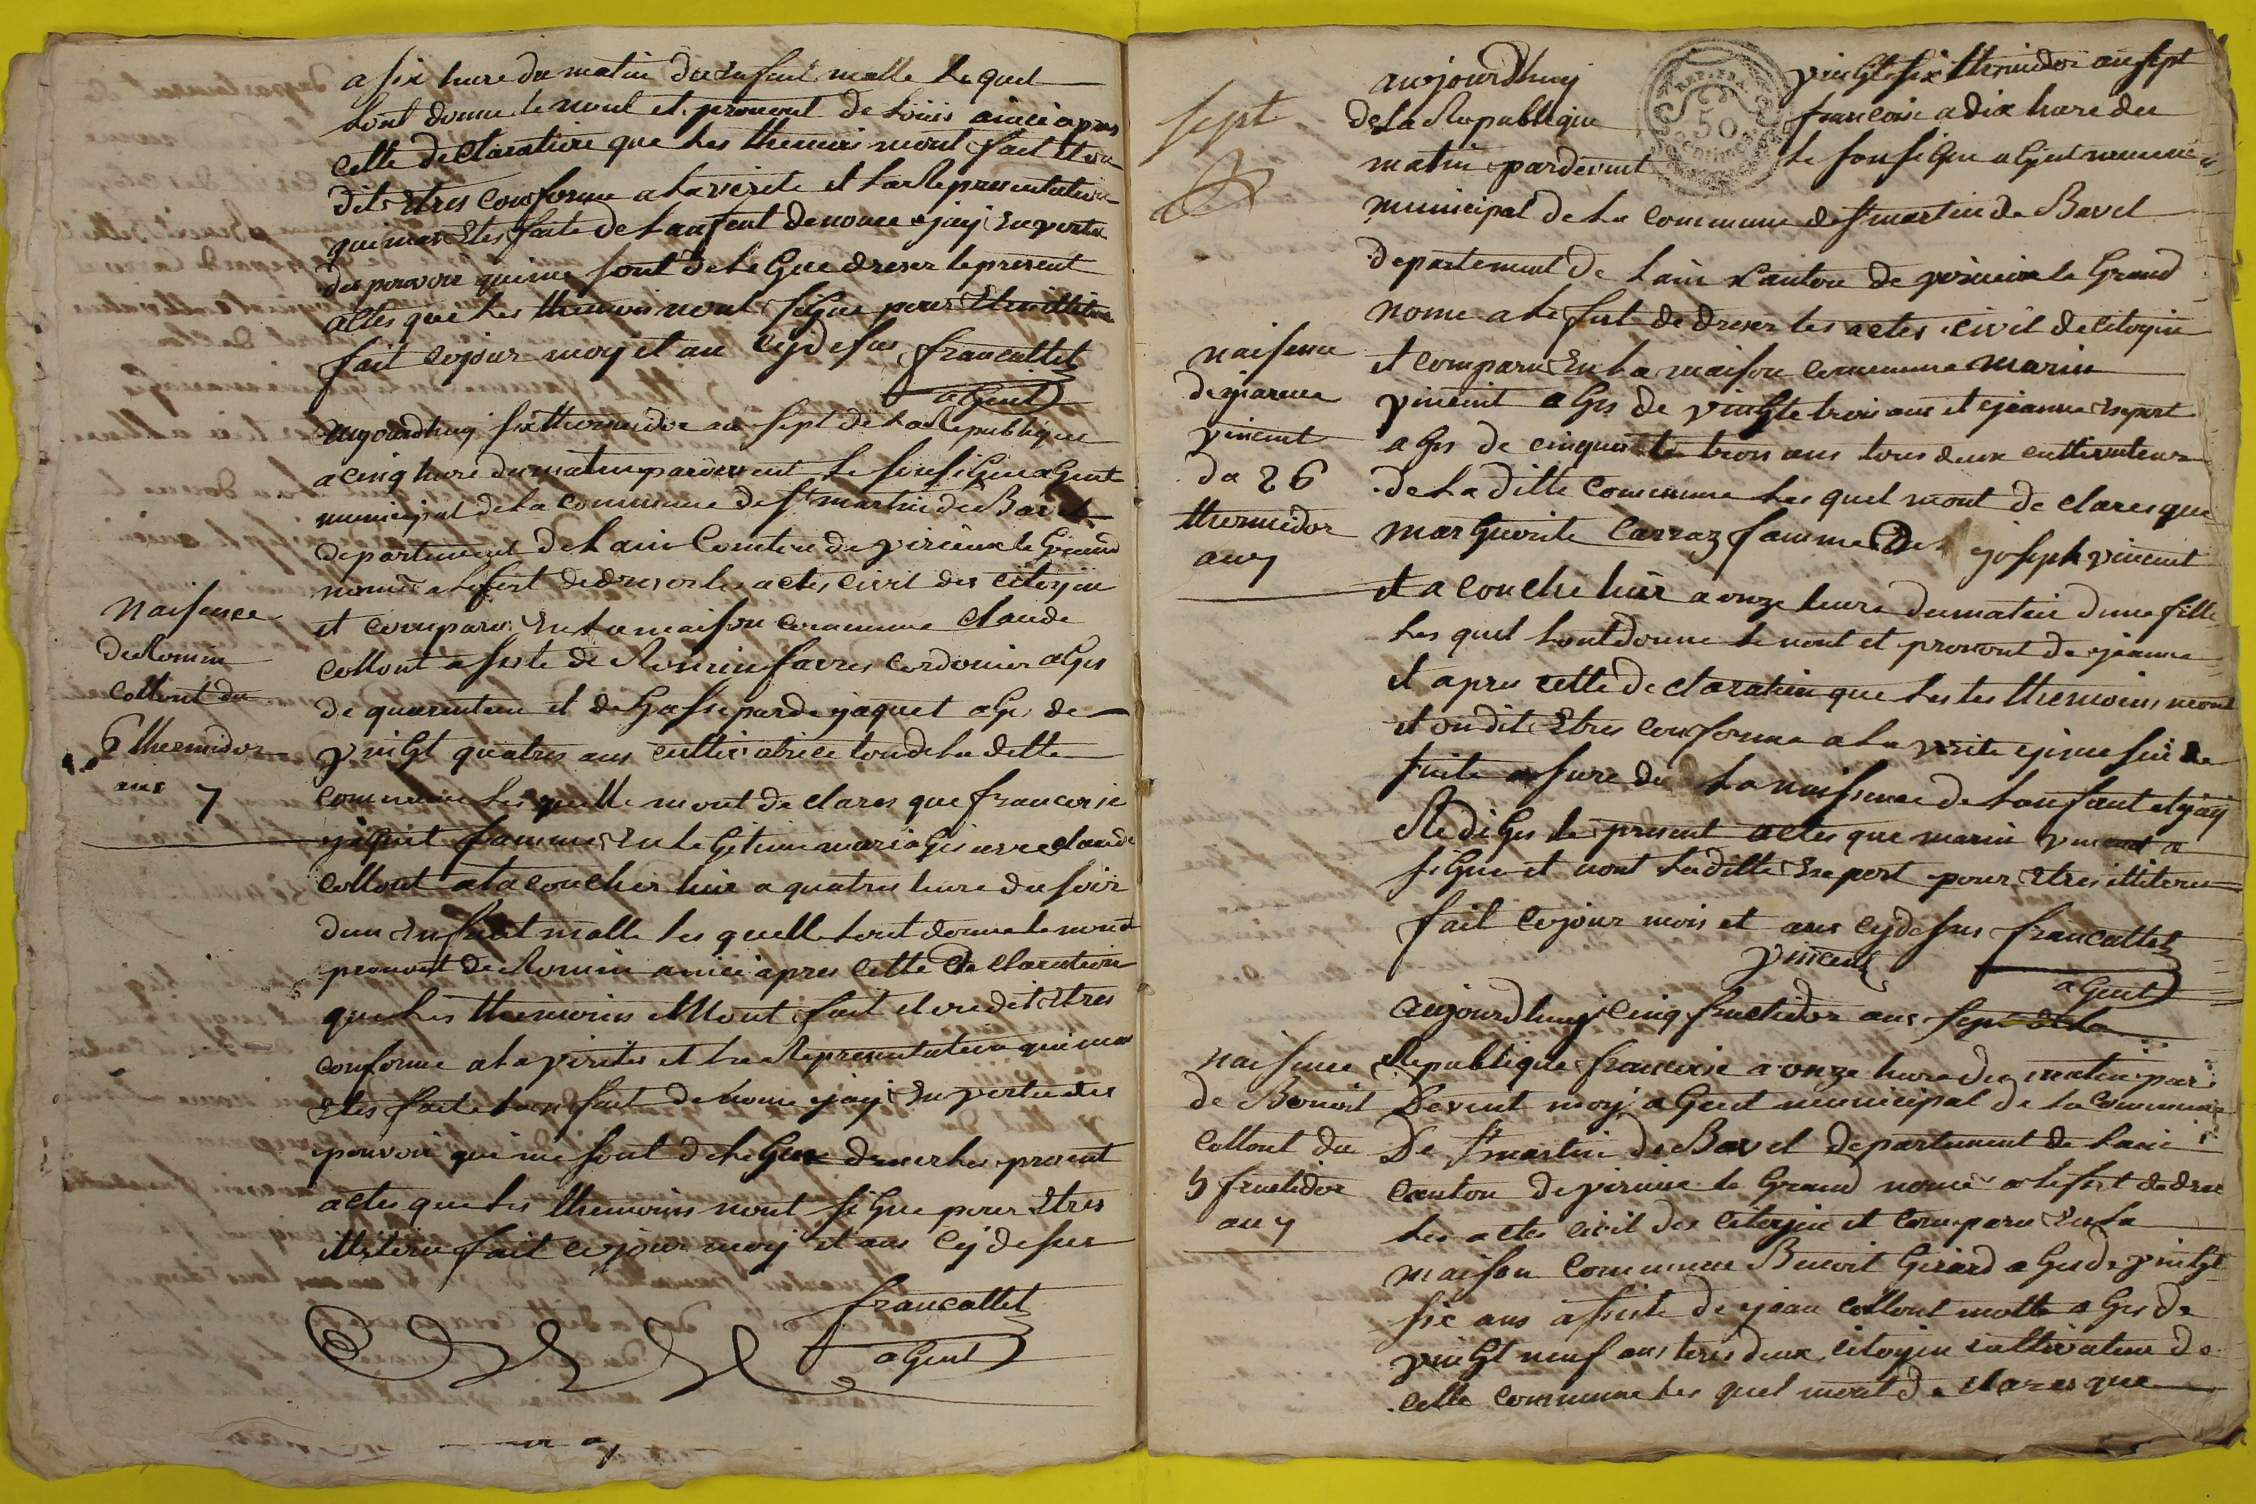 a six hure du matin du enfent malle le quel
lont donne le nont et pronont de louis ainci apres
cette declaration que les themoins mont fait et on
dit Etres conforme a la verite et la Representation
qui mas Etes faite de lanfent denonce ejaij En vertu
des pouvoir qui me sont delegue dreser le present
actes que les themoin nont signe pour Etre illiteru
fait ce jour moij et an cij desus francallet
agent
aujourdhuij six thermidor an sept de la Republique
a cinq hure du matin pardevent le sousigne agent
municipal de la commune de st martin de Bavel
departement de lain Canton de virieux le Grand
nomé a lefest de dreser les actes civil des citoyin
Naisence
et comparu En la maison commune claude
de Romin
collont asiste de Romin favres cordonier ages
collont du
de quarenteun et de Gasseparde yaquet age de
6 thermidor
vinGt quatres ans cultivatrice tou de la ditte
ans 7
commune les quelle mont declares que francoise
yaquet famme En leGitime mariages avec claude
collont at acoucher hier a quatres hure du soir
dun Enfent malle les quelle lont donne le nom et
pronont de Romin ainci apres cette declaration
que les themoins Mont fait et on dit Etres
conforme a la verites et la Representation qui mas
Etes faite lenfent denonce ejaij En vertu des
pouvoir qui me sont delegue dreser les present
actes que les themoins nont signe pour Etres
illiteru fait ce jour moij et ans cij desus
francallet
agent
sept
aujourdhuij vinGt six thermidor an sept
de la Republique francoise a dix hure du
REP. FRA.
50
CENTIMES
matin pardevent le sousigne agent
municipal de la commune de st martin de Bavel
departement de lain Canton de virieux le Grand
nome a lefest de dreser les actes civil de citoyin
naisence
et comparu En la maison commune marin
de yianne
vincent ages de vinGt trois ans et ejeanne Enpert
vincent
ages de cinquante trois ans tous deux cultivateur
du 26
de la ditte commune les quel mont declares que
thermidor
marGuerite Carraz famme De joseph vincent
an 7
et a couche hier a onze hure du matin dune fille
les quel lont donne le nont et pronont de yianne
et apres cette declaration que les les themoins mont
et on dit Etres conforme a la verite ejime sui
fuite asure de la naissence de lanfant et jaij
RediGes le present actes que marin vincent a
signe et nont laditte Enpert pour Etres illiteru
fait ce jour mois et ans cij desus francallet
vincent
agent
aujourdhuij cinq fructidor ans sept de la
naisence
Republique francoise a onze hure du matin par
de Benoit
Devent moij agent municipal de la commune
collont du
De st martin de Bavel departement de lain
5 fructidor
canton de virieu le Grand nomé a lefest de dres
an 7
les actes civil des citoyin et comparu En la
maison commune Benoit Girard ages de vinGt
six ans asiste de ejean collont motte ages de
vinGt neuf ans tous deux citoyin cultivateur de
cette commune les quel mont declares que